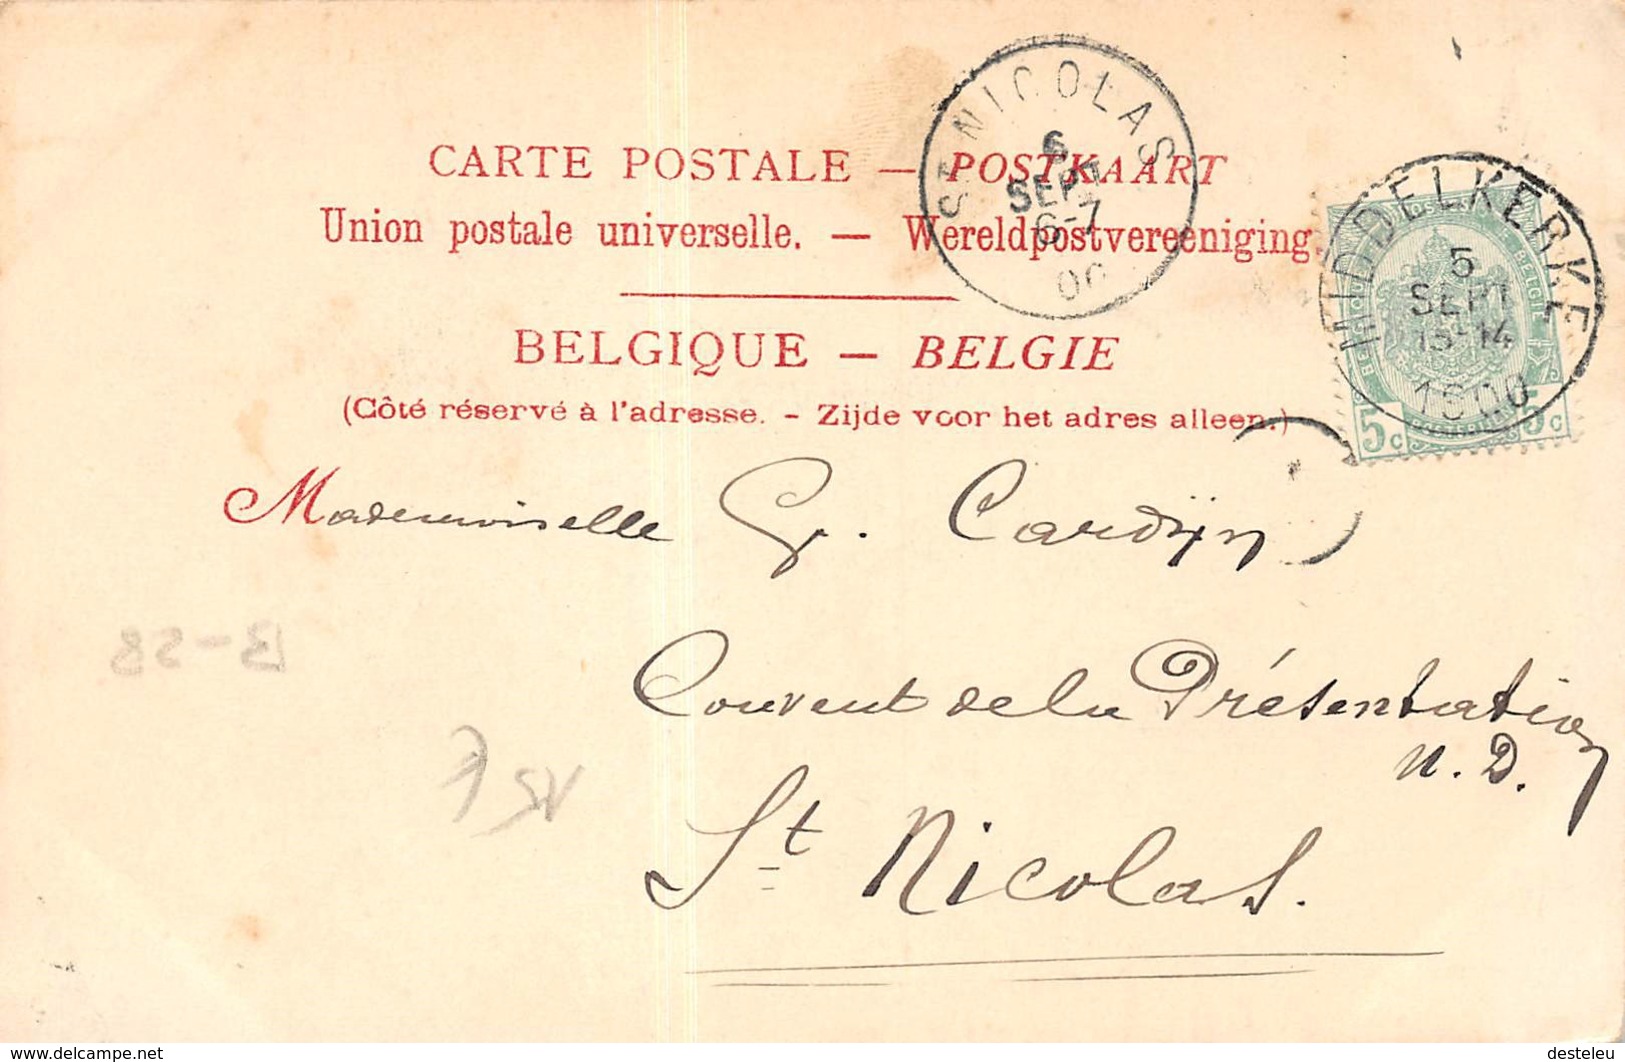 CARTE POSTALE — POSTKAART
Union postale universelle. — Wereldpostvereeniging.
BELGIQUE — BELGIE
(Côté réservé à l'adresse. - Zijde voor het adres alleen.)
ST NICOLAS
6
SEPT
6-7
00
MIDDELKERKE
5
SEPT
13-14
1900
5c 5c
Mademoiselle G. Cardijn
Couvent de la Présentation
N. D.
St Nicolas.
B-58
www.delcampe.net
desteleu